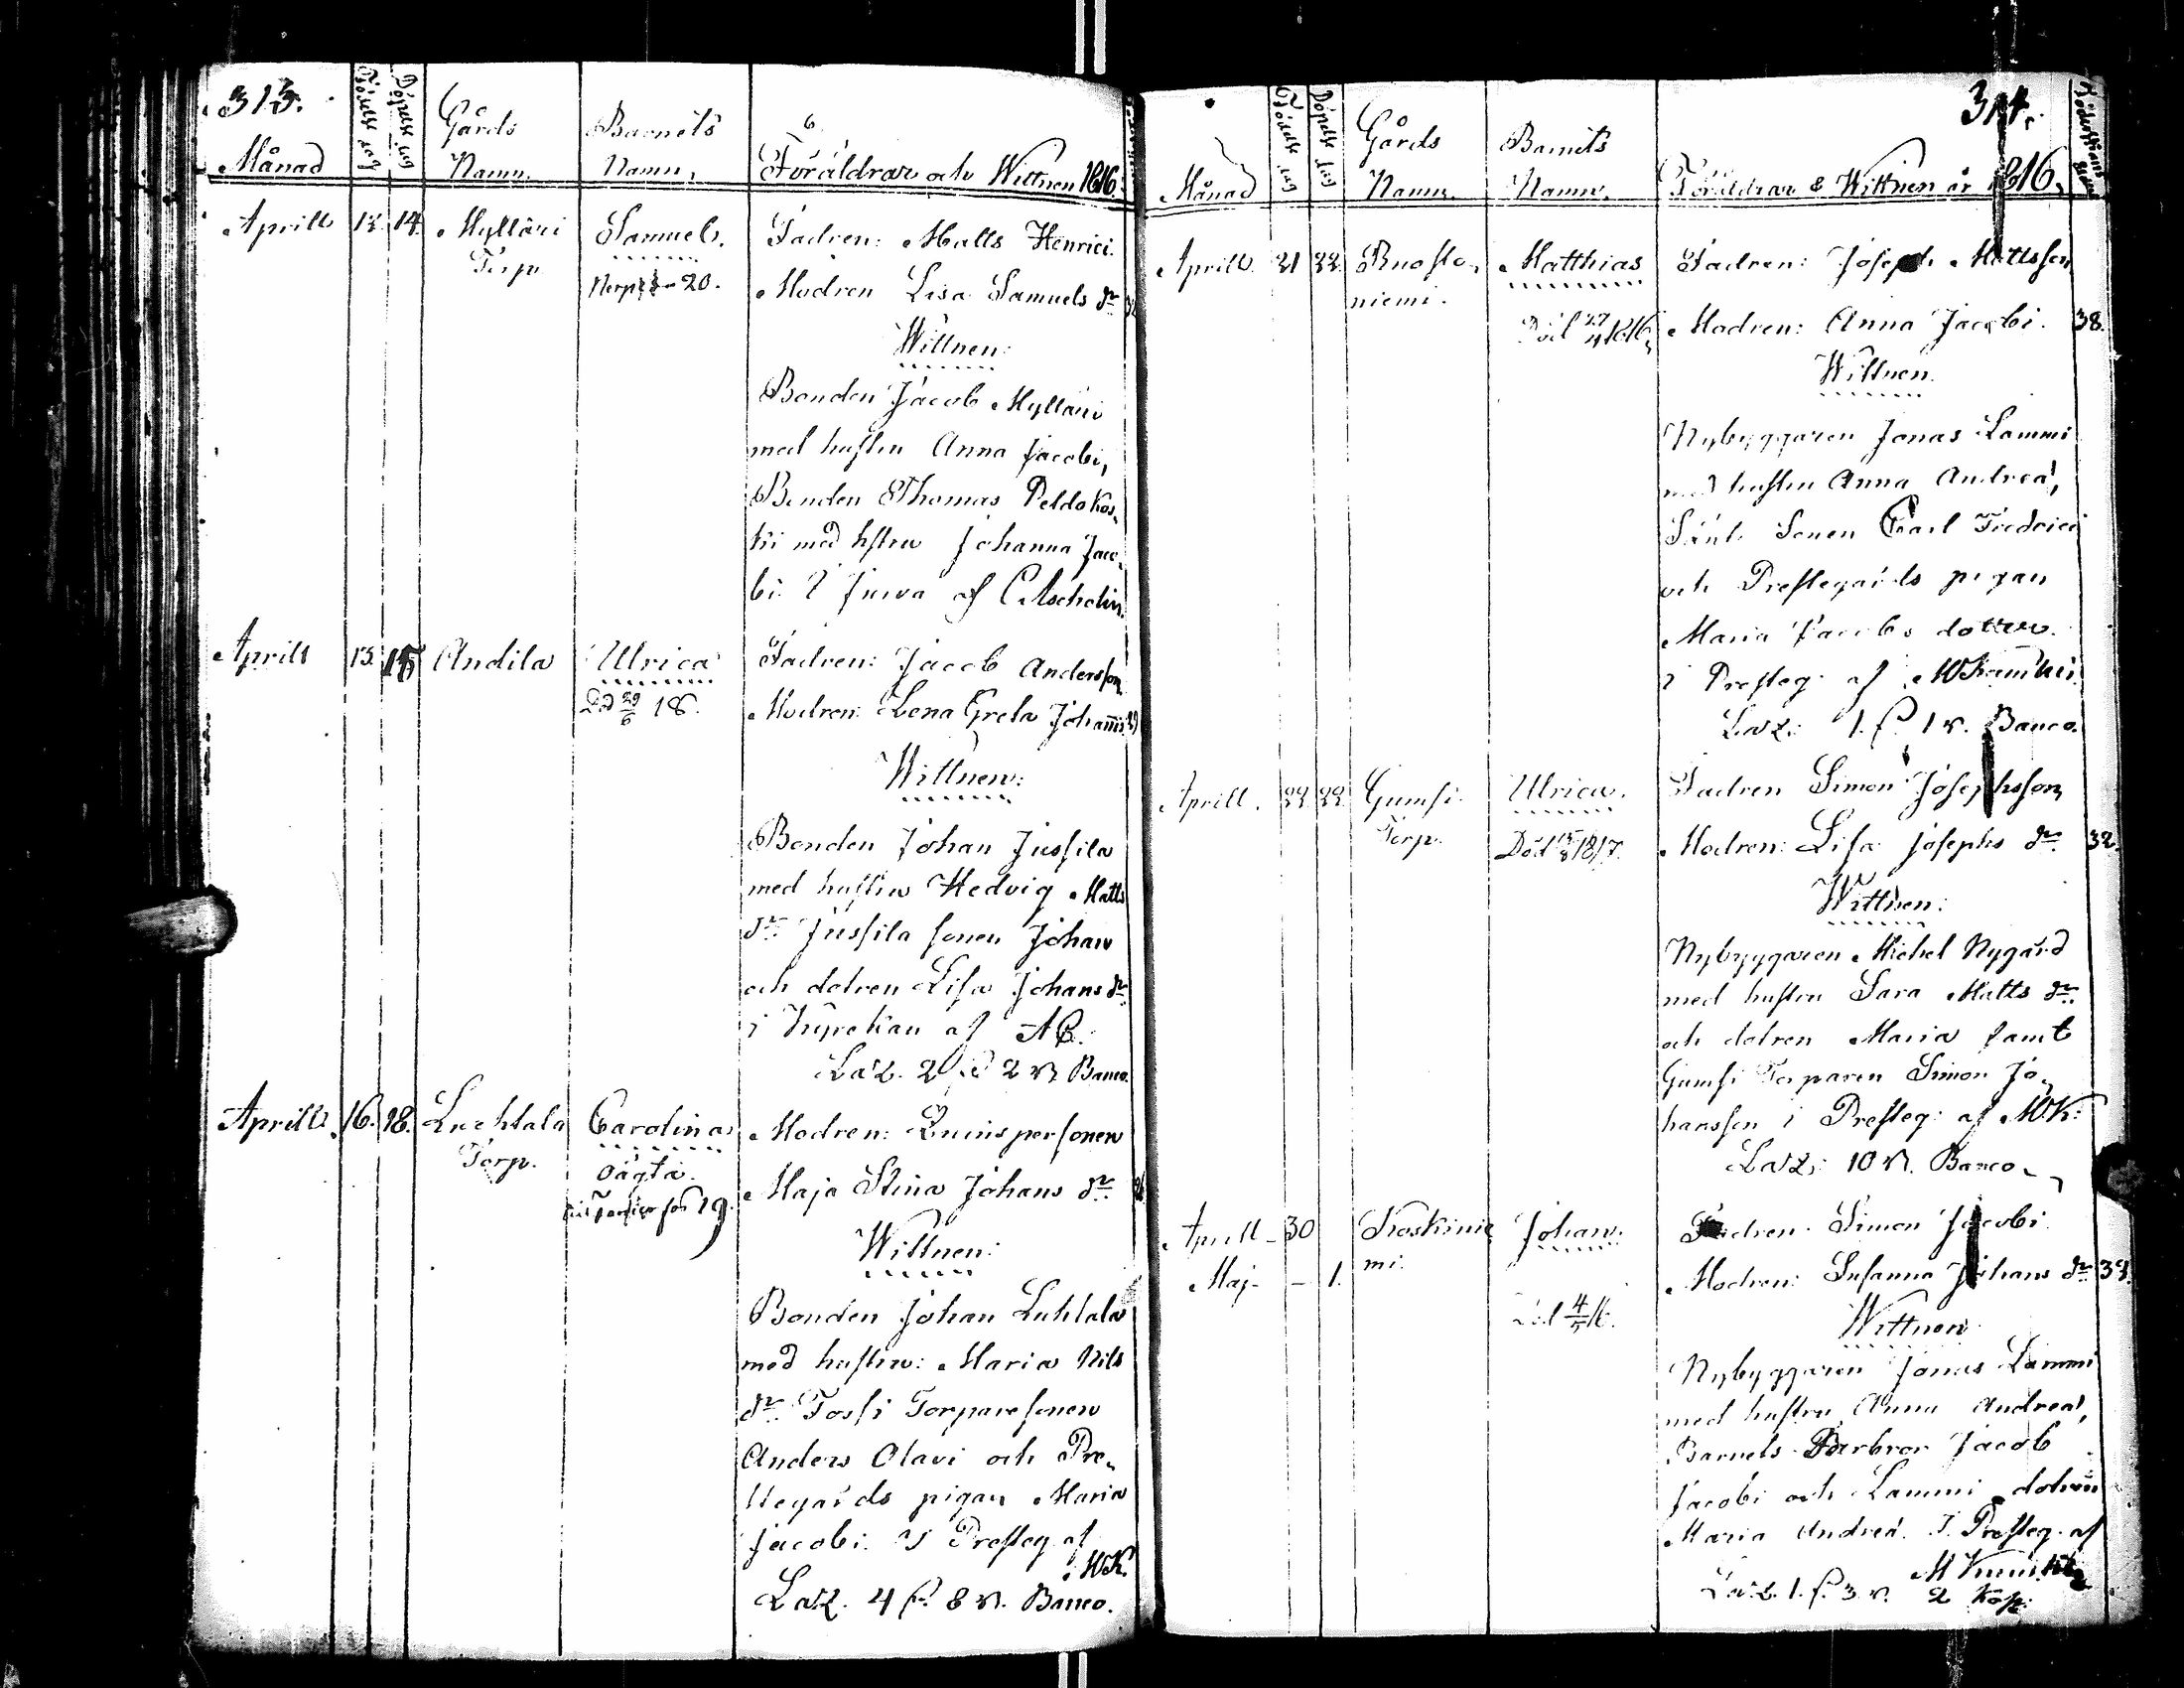 313.
Månad Födelse dag Döpelse dag Gårds Namn. Barnets Namn, Föräldrar och Wittnen 1816.
Aprill 13. 14. Mylläri Torp Samuel. Fadren: Matts Henrici.
20. Modren Lisa Samuels dr
Wittnen:
Bonden Jacob Mylläri
med hustru Anna Jacobi,
Bonden Thomas Peldokos
ki med hstru Johanna Jaco
bi. I Jurva af C. Aschelin.
Aprill 13. 15 Andila Ulrica Fadren: Jacob Andersson
Död 29/6 18. Modren: Lena Greta Johannis
Wittnen:
Bonden Johan Jussila
med hustru Hedvig Matts
dr Jussila sonen Johan
och dotren Lisa Johans dr
i Kyrckan af AC.
Laz. 2 ß 2 r. Banco.
Aprill. 16. 18. Luhtala Torp. Carolina Modren: Quinspersonen
oägta. Maja Stina Johans dr.
19.
Wittnen:
Bonden Johan Luhtala
med hustru: Maria Nils
dr. Tossi Torparesonen
Anders Olavi och Pre
stegårds pigan Maria
Jacobi. I Presteg. af
MK.
Laz. 4 ß. 8 r. Banco.
314.
Månad Födelse dag Döpelse dag Gårds Namn. Barnets Namn. Föräldrar & Wittnen år 1816.
Aprill. 21 22. Ruosto niemi. Matthias Fadren: Joseph Mattsson
Död 27/4 1816. Modren: Anna Jacobi. 38.
Wittnen.
Nybyggaren Jonas Lammi
med hustru Anna Andreæ,
Sonen Carl Fredrici
och Prestegårds pigan
Maria Jacobs dotter.
I Presteg. af M Krank
Laz: 1. ß. 1 r. Banco.
Aprill. 22. 22. Gumsi Torp. Ulrica. Fadren Simon Josephsson
Död 15/8 1817. Modren: Lisa Josephs dr. 32.
Wittnen:
Nybyggaren Michel Nygård
med hustru Sara Matts dr.
och dotren Maria samt
Gumsi Torparen Simon Jo
hansson i Presteg: af MK:
Laz: 10 r. Banco
Aprill 30 Koskinie mi. Johan. Fadren. Simon Jacobi.
Maj - 1. Modren: Susanna Johans dr 34.
Död 4/5 16. Wittnen
Nybyggaren Jonas Lammi
med hustru Anna Andreæ,
Barnets Farbror Jacob
Jacobi och Lammi dotren
Maria Andreæ. I Presteg. af
M
Laz. 1. ß. 3 r. 2 Kop.